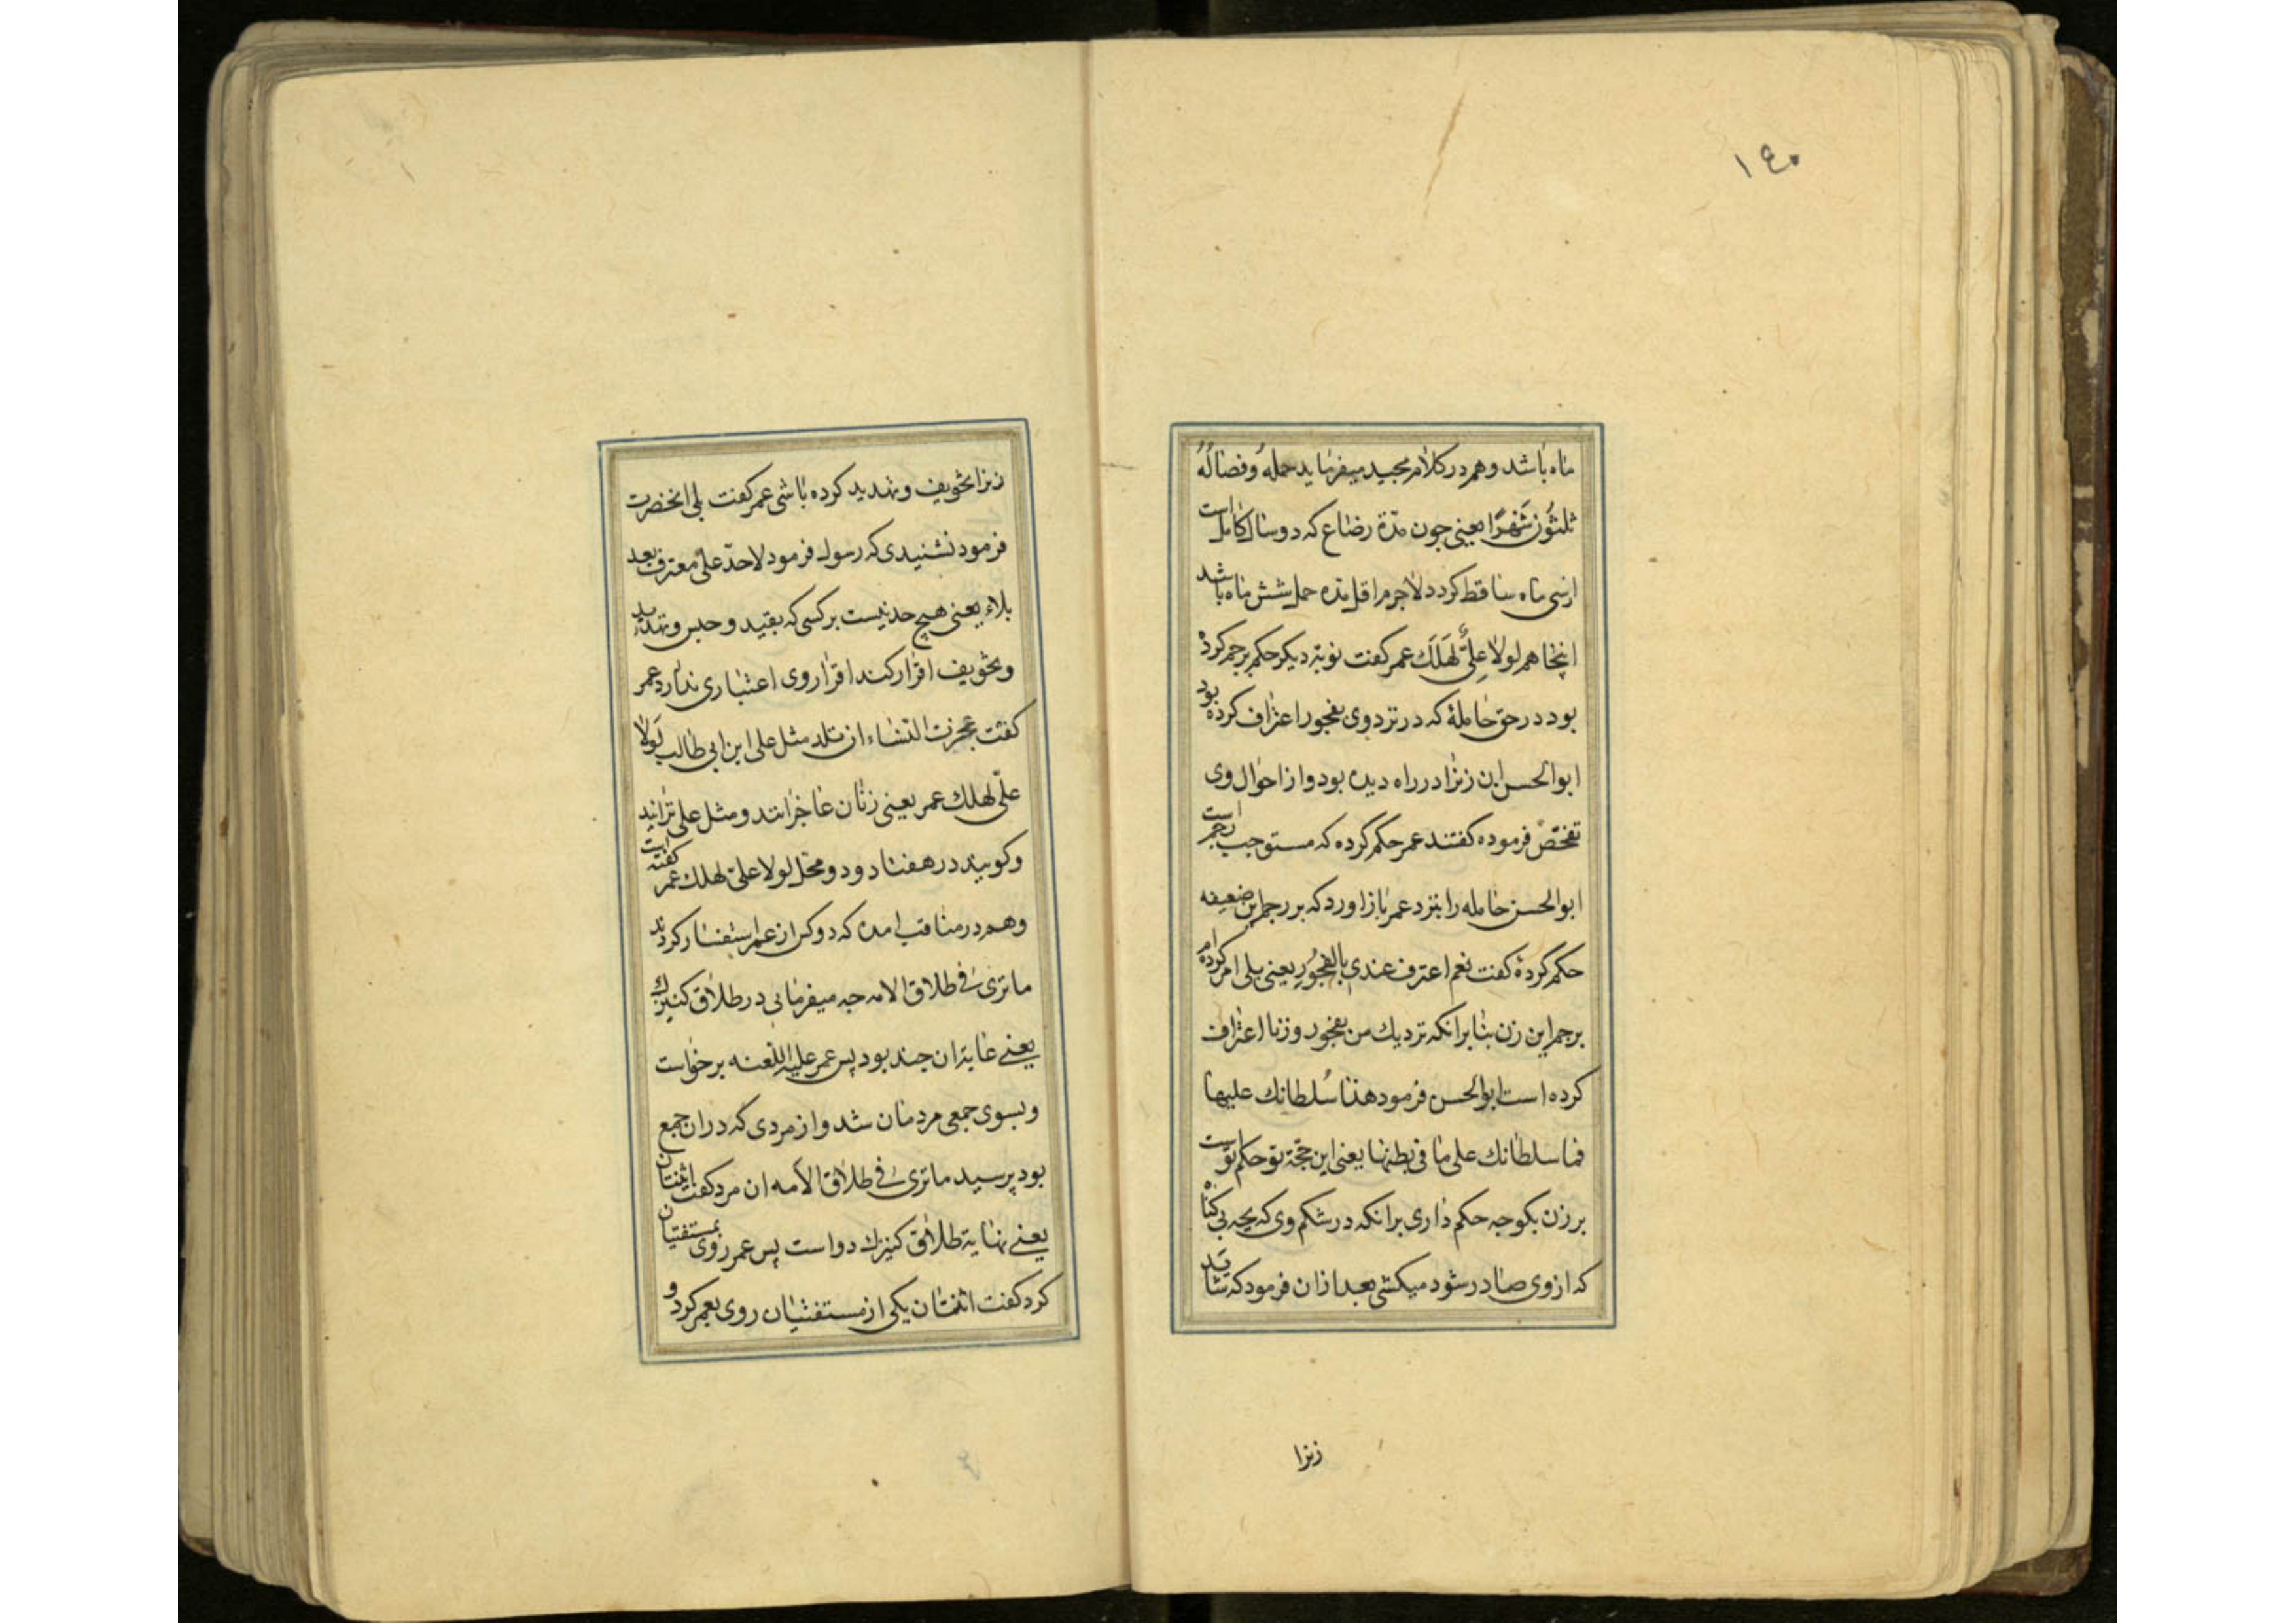 ١٤٠
ماه باشد و هم در کلام مجید میفرماید حمله وفصاله
ثلثون شهرا یعنی چون مدة رضاع که دو سال کامل است
از سی ماه ساقط کردد لاجرم اقل مده حمل شش ماه باشد
اینجا هم لولا علیٌّ لَهَلَكَ عمر کفت نوبة دیکر حکم برجم کرده
بود در حق حاملهٔ که در نزد وی بفجور اعتراف کرده بود
ابوالحسن ان زنرا در راه دیده بود و از احوال وی
تفحص فرموده کفتند عمر حکم کرده که مستوجب رجم است
ابوالحسن حامله را بنزد عمر باز اورد که بر رجم این ضعیفه
حکم کردهٔ کفت نعم اعترف عندی بالفجور یعنی بلی امر کرده ام
برجم این زن بنا برانکه نزدیك من بفجور و زنا اعتراف
کرده است ابوالحسن فرمود هذا سُلطانك علیها
فما سلطانك علی ما فی بطنها یعنی این حجّة تو حکم توست
بر زن بکو چه حکم داری برانکه در شکم وی که بچه بی کناه
که از وی صادر شود میکشی بعد از ان فرمود که شاید
زنرا
زنرا تخویف و تهدید کرده باشی عمر کفت بلی انحضرت
فرمود نشنیدی که رسول فرمود لاحدّ علی معترف بعد
بلاء یعنی هیچ حد نیست بر کسی که بقید و حبس و تهدید
و تخویف اقرار کند اقرار وی اعتباری ندارد عمر
کفت عجزت النساء ان تلد مثل علی ابن ابی طالب لَولا
علیّ لهلك عمر یعنی زنان عاجزانند و مثل علی نزایند
و کویند در هفتاد و دو محل لولا علیّ لهلك عمر کفته است
و هم در مناقب امده که دو کس از عمر استفسار کردند
ما تری فی طلاق الامه چه میفرمایی در طلاق کنیزك
یعنے غایة ان چند بود پس عمر علیه اللعنه برخواست
و بسوی جمعی مردمان شد و از مردی که در ان جمع
بود پرسید ما تری فی طلاق الامه ان مرد کفت اثنتان
یعنے نهایة طلاق کنیزك دو است پس عمر روی بمستفتیان
کرد کفت اثنتان یکی از مستفتیان روی بعمر کرد و